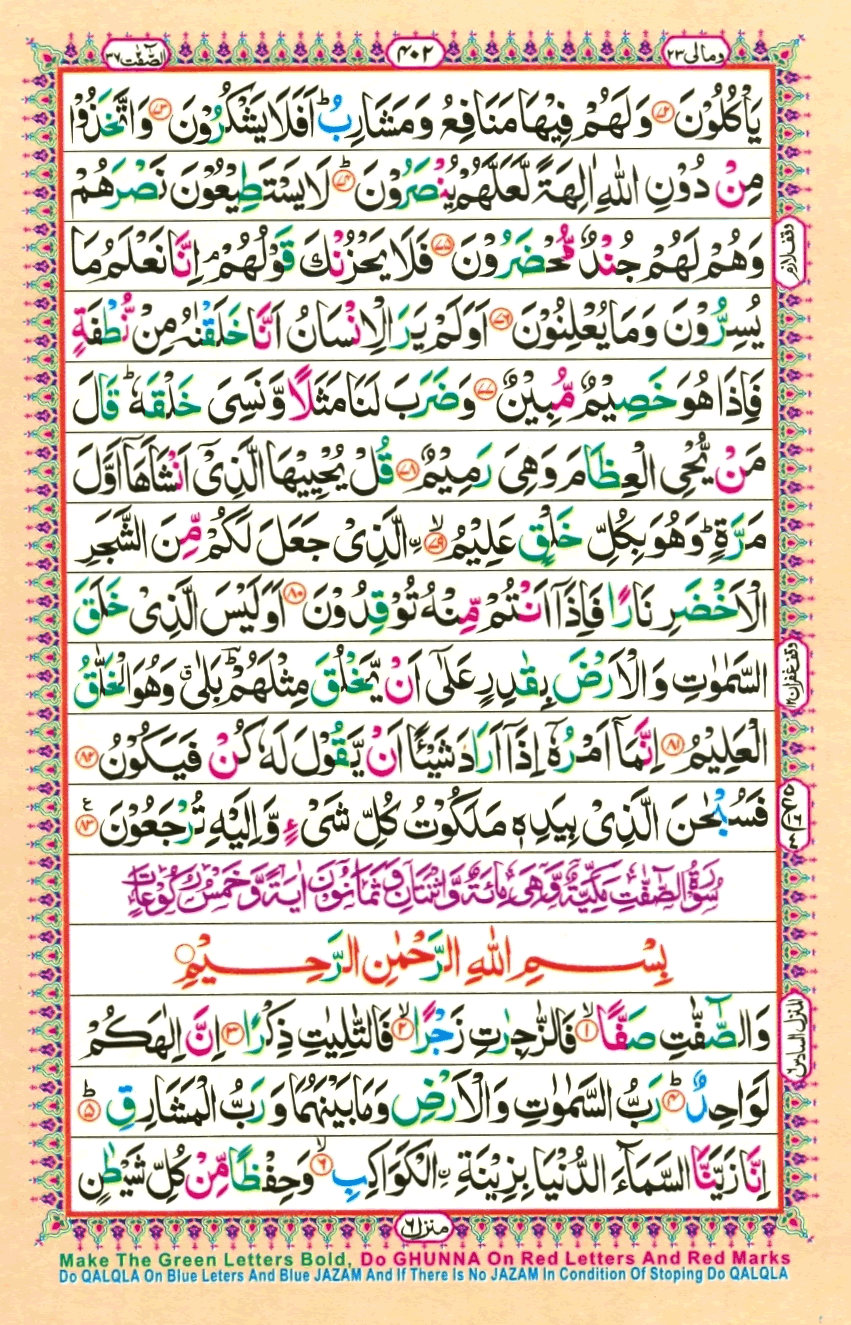 ومالی ۲۳
۴۰۲
الصّٰٓفّٰت ۳۷
یَاْكُلُوْنَ ﴿۷۲﴾ وَلَهُمْ فِیْهَا مَنَافِعُ وَمَشَارِبُ ؕ اَفَلَا یَشْكُرُوْنَ ﴿۷۳﴾ وَاتَّخَذُوْا
مِنْ دُوْنِ اللّٰهِ اٰلِهَةً لَّعَلَّهُمْ یُنْصَرُوْنَ ﴿۷۴﴾ؕ لَا یَسْتَطِیْعُوْنَ نَصْرَهُمْ
وَهُمْ لَهُمْ جُنْدٌ مُّحْضَرُوْنَ ﴿۷۵﴾ فَلَا یَحْزُنْكَ قَوْلُهُمْ ۘ اِنَّا نَعْلَمُ مَا
وقف لازم
یُسِرُّوْنَ وَمَا یُعْلِنُوْنَ ﴿۷۶﴾ اَوَلَمْ یَرَ الْاِنْسَانُ اَنَّا خَلَقْنٰهُ مِنْ نُّطْفَةٍ
فَاِذَا هُوَ خَصِیْمٌ مُّبِیْنٌ ﴿۷۷﴾ وَضَرَبَ لَنَا مَثَلًا وَّنَسِیَ خَلْقَهٗ ؕ قَالَ
مَنْ یُّحْیِ الْعِظَامَ وَهِیَ رَمِیْمٌ ﴿۷۸﴾ قُلْ یُحْیِیْهَا الَّذِیْۤ اَنْشَاَهَاۤ اَوَّلَ
مَرَّةٍ ؕ وَهُوَ بِكُلِّ خَلْقٍ عَلِیْمُ ﴿۷۹﴾ۙ ۨالَّذِیْ جَعَلَ لَكُمْ مِّنَ الشَّجَرِ
الْاَخْضَرِ نَارًا فَاِذَاۤ اَنْتُمْ مِّنْهُ تُوْقِدُوْنَ ﴿۸۰﴾ اَوَلَیْسَ الَّذِیْ خَلَقَ
السَّمٰوٰتِ وَالْاَرْضَ بِقٰدِرٍ عَلٰۤی اَنْ یَّخْلُقَ مِثْلَهُمْ ؔؕ بَلٰی ۗ وَهُوَ الْخَلّٰقُ
وقف غفران ۱۲
الْعَلِیْمُ ﴿۸۱﴾ اِنَّمَاۤ اَمْرُهٗۤ اِذَاۤ اَرَادَ شَیْـًٔا اَنْ یَّقُوْلَ لَهٗ كُنْ فَیَكُوْنُ ﴿۸۲﴾
فَسُبْحٰنَ الَّذِیْ بِیَدِهٖ مَلَكُوْتُ كُلِّ شَیْءٍ وَّاِلَیْهِ تُرْجَعُوْنَ ﴿۸۳﴾ ع
سُوْرَةُ الصّٰٓفّٰتِ مَكِّیَّةٌ وَّهِیَ مِائَةٌ وَّاثْنَتَانِ وَثَمَانُوْنَ اٰیَةً وَّخَمْسُ رُكُوْعَاتٍ
بِسْمِ اللّٰهِ الرَّحْمٰنِ الرَّحِیْمِ
وَالصّٰٓفّٰتِ صَفًّا ﴿۱﴾ۙ فَالزّٰجِرٰتِ زَجْرًا ﴿۲﴾ۙ فَالتّٰلِیٰتِ ذِكْرًا ﴿۳﴾ۙ اِنَّ اِلٰهَكُمْ
المنزل السادس
لَوَاحِدٌ ﴿۴﴾ؕ رَبُّ السَّمٰوٰتِ وَالْاَرْضِ وَمَا بَیْنَهُمَا وَرَبُّ الْمَشَارِقِ ﴿۵﴾ؕ
اِنَّا زَیَّنَّا السَّمَآءَ الدُّنْیَا بِزِیْنَةِ ۨالْكَوَاكِبِ ﴿۶﴾ۙ وَحِفْظًا مِّنْ كُلِّ شَیْطٰنٍ
منزل ۶
Make The Green Letters Bold, Do GHUNNA On Red Letters And Red Marks
Do QALQLA On Blue Leters And Blue JAZAM And If There Is No JAZAM In Condition Of Stoping Do QALQLA